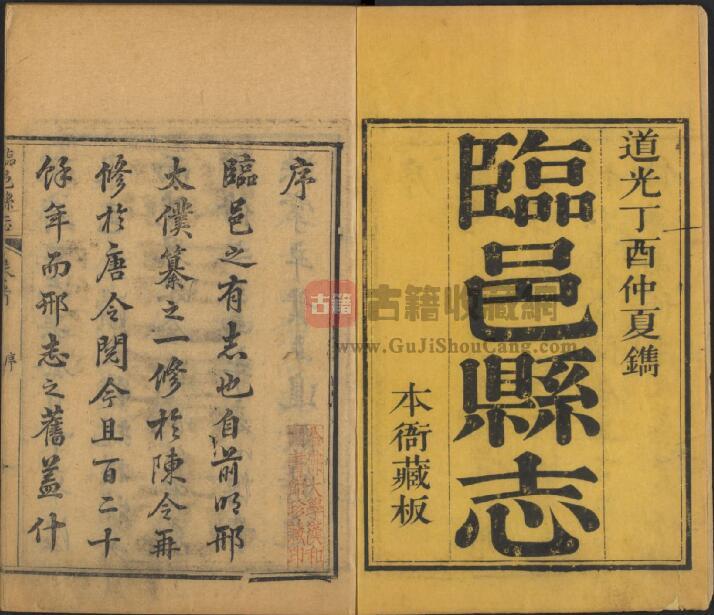 道光丁酉仲夏鐫
臨邑縣志
本衙藏板
序
臨邑之有志也自前明邢
太僕纂之一修於陳令再
修於唐令閱今且百二十
餘年而邢志之舊蓋什
臨邑縣志
序
古籍
古籍收藏網
www.GuJiShouCang.com